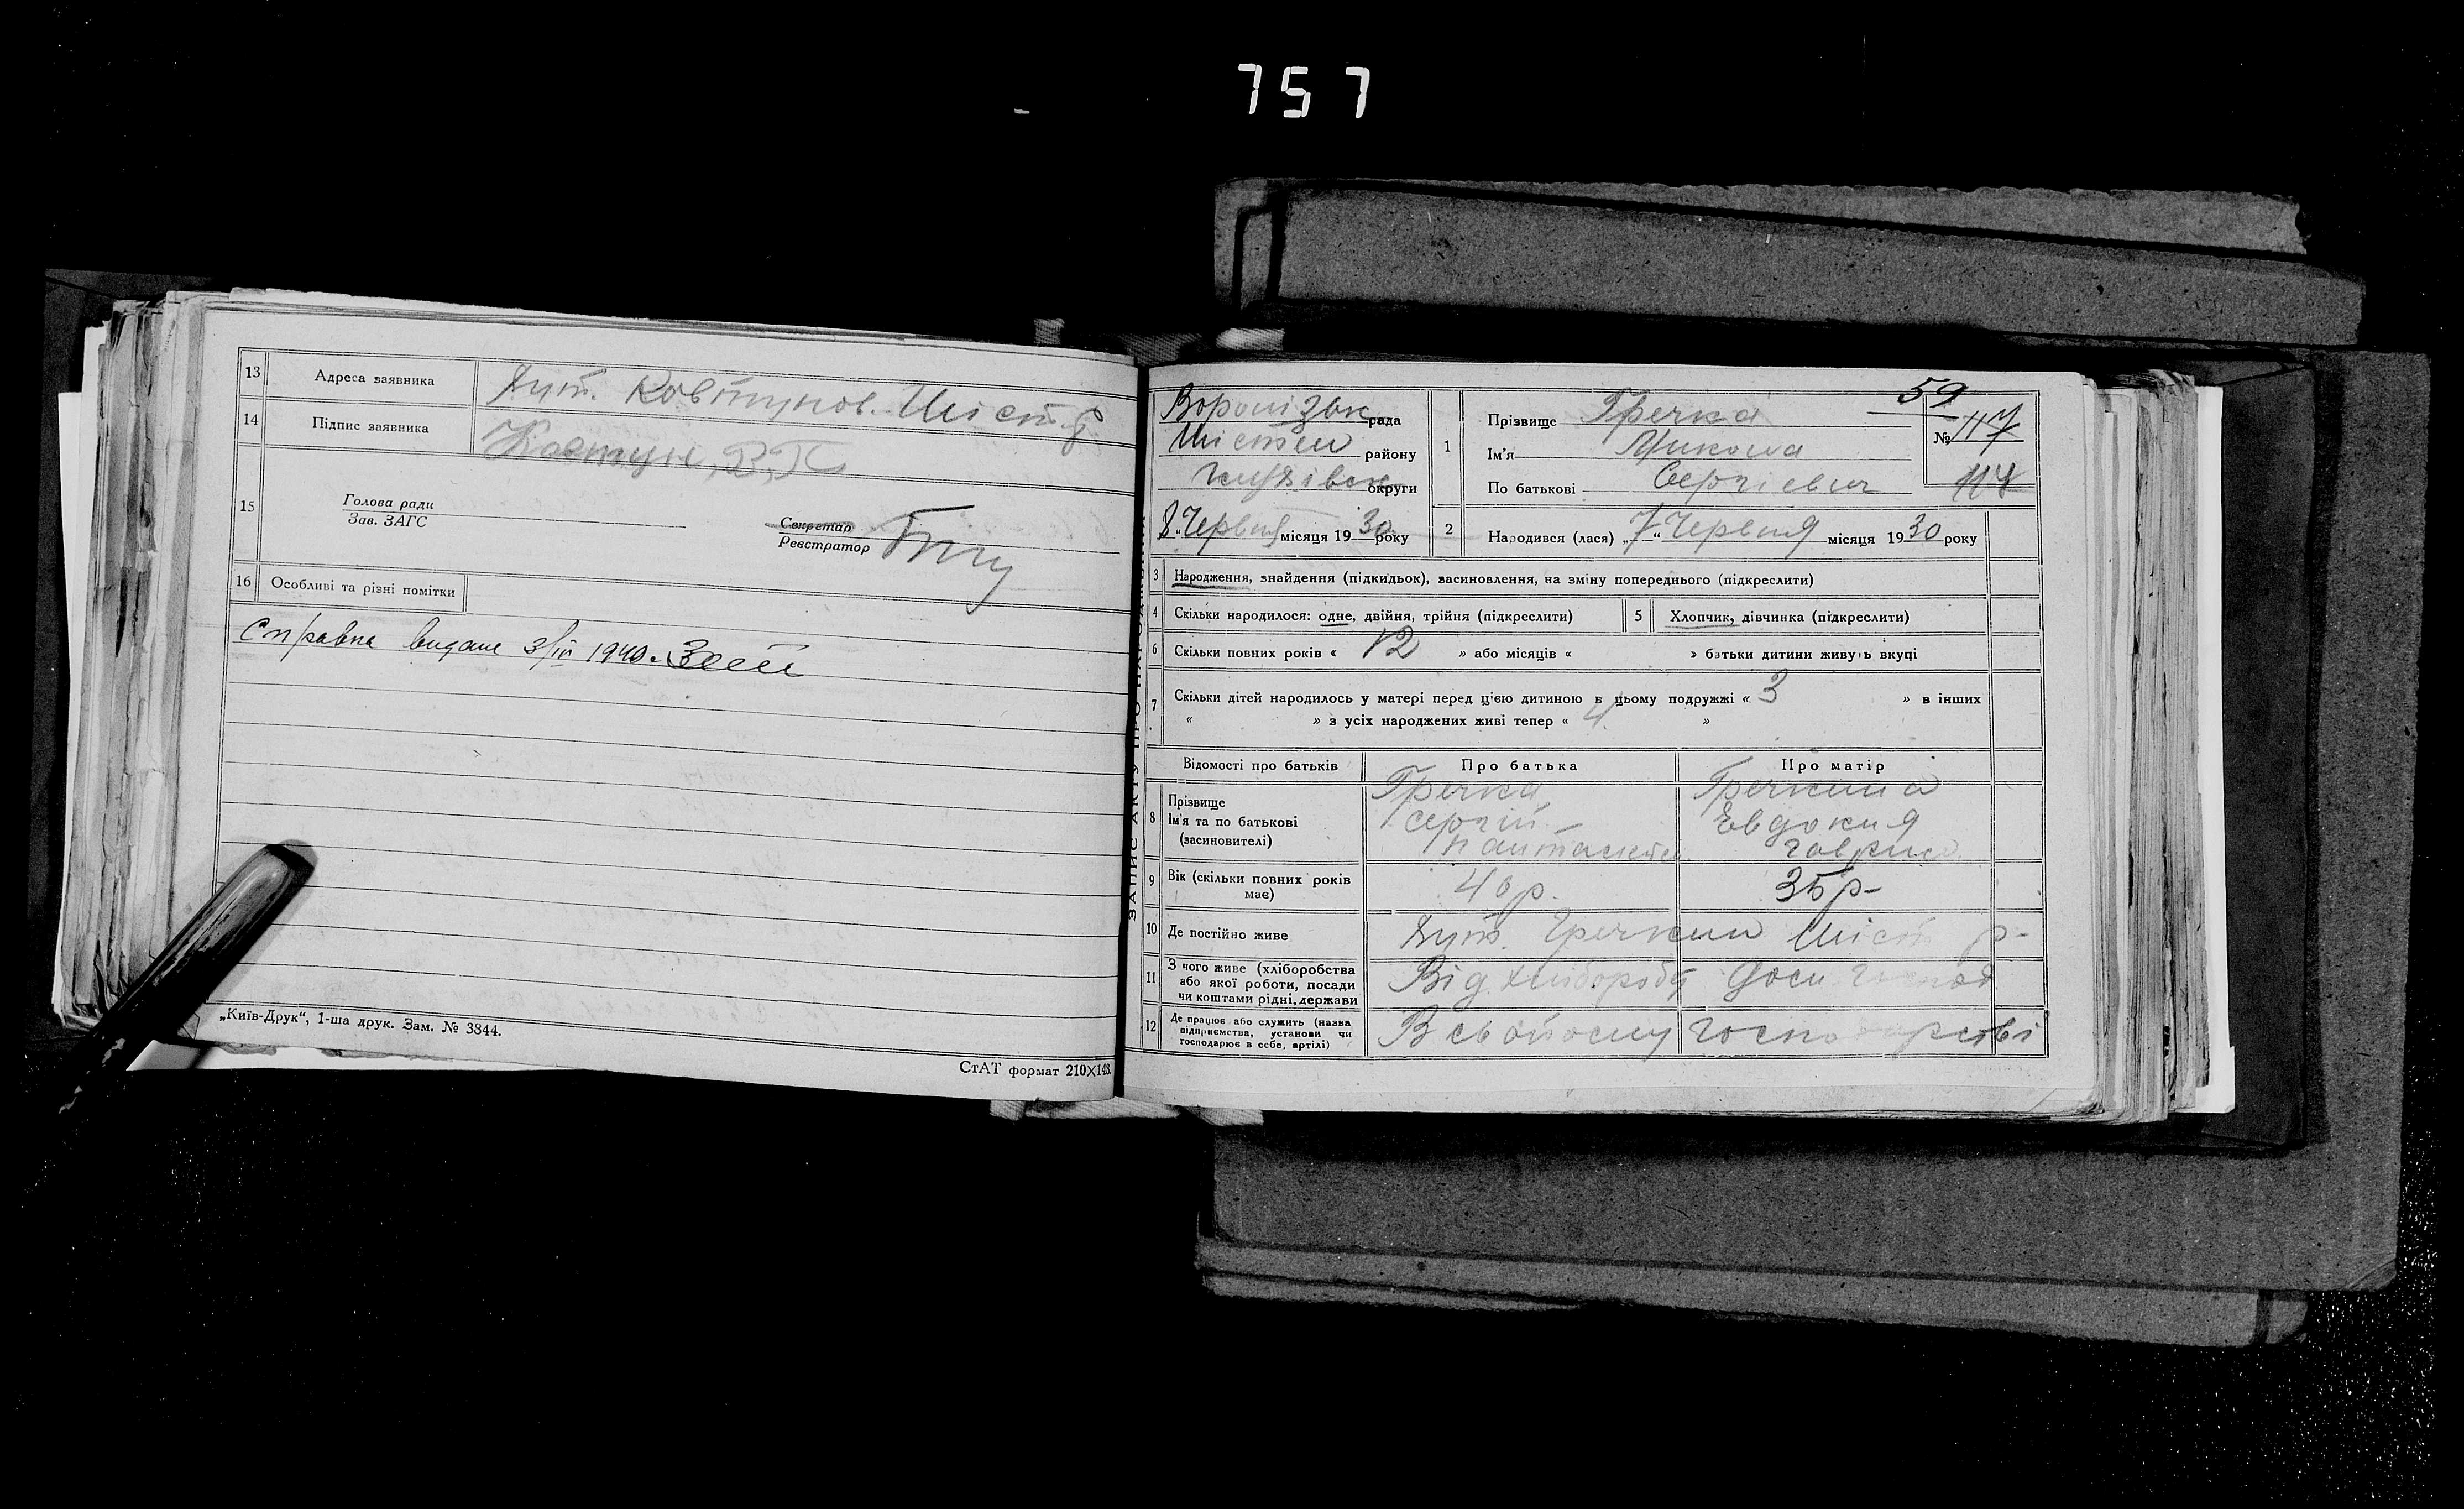 757
13 Адреса заявника Хут. Ковтунов. Шіст. р
14 Підпис заявника Ковтун, В, П
15 Голова ради
Зав. ЗАГС
Секретар
Реєстратор
16 Особливі та різні помітки
Справка видана 3/IV 1940.
„Київ-Друк“, 1-ша друк. Зам. № 3844.
СтАТ формат 210X148.
ЗАПИС АКТУ ПРО НАРОДЖЕННЯ
59
Воронізьк рада
Шісткин району
Глухівськ округи
8 „Червня місяця 1930 року
1 Прізвище Гречка
Ім'я Микола
По батькові Сергієвич
№ 117
114
2 Народився (лася) „7“ Червня місяця 1930 року
3 Народження, знайдення (підкидьок), засиновлення, на зміну попереднього (підкреслити)
4 Скільки народилося: одне, двійня, трійня (підкреслити)
5 Хлопчик, дівчинка (підкреслити)
6 Скільки повних років « 12 » або місяців « » батьки дитини живуть вкупі
7 Скільки дітей народилось у матері перед цією дитиною в цьому подружжі « 3 » в інших
« » з усіх народжених живі тепер « 4 »
Відомості про батьків Про батька Про матір
8 Прізвище
Ім'я та по батькові
(засиновителі)
Гречка
Сергій
Гречкина
Евдокия
Гаврил
9 Вік (скільки повних років має) 40 р. 35 р-
10 Де постійно живе Хут. Гречкин Шіст р-
11 З чого живе (хліборобства або якої роботи, посади чи коштами рідні, держави Від хліборобу дом
12 Де працює або служить (назва підприємства, установи чи господарює в себе, артілі) В свойому господарстві